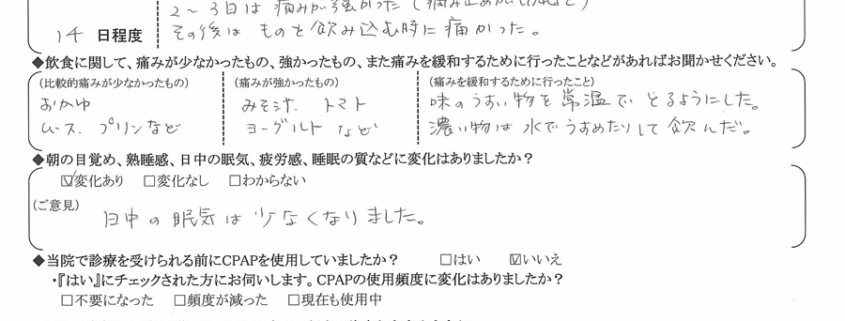 2〜3日は痛みが強かった(痛み止めが
14 日程度 その後はものを飲み込む時に痛かった。
◆飲食に関して、痛みが少なかったもの、強かったもの、また痛みを緩和するために行ったことなどがあればお聞かせください。
(比較的痛みが少なかったもの) (痛みが強かったもの) (痛みを緩和するために行ったこと)
おかゆ みそ汁. トマト 味のうすい物を常温でとるようにした。
ムース. プリンなど ヨーグルトなど 濃い物は水でうすめたりして飲んだ。
◆朝の目覚め、熟睡感、日中の眠気、疲労感、睡眠の質などに変化はありましたか？
☑変化あり □変化なし □わからない
(ご意見)
日中の眠気は少なくなりました。
◆当院で診療を受けられる前にCPAPを使用していましたか？ □はい ☑いいえ
・『はい』にチェックされた方にお伺いします。CPAPの使用頻度に変化はありましたか？
□不要になった □頻度が減った □現在も使用中